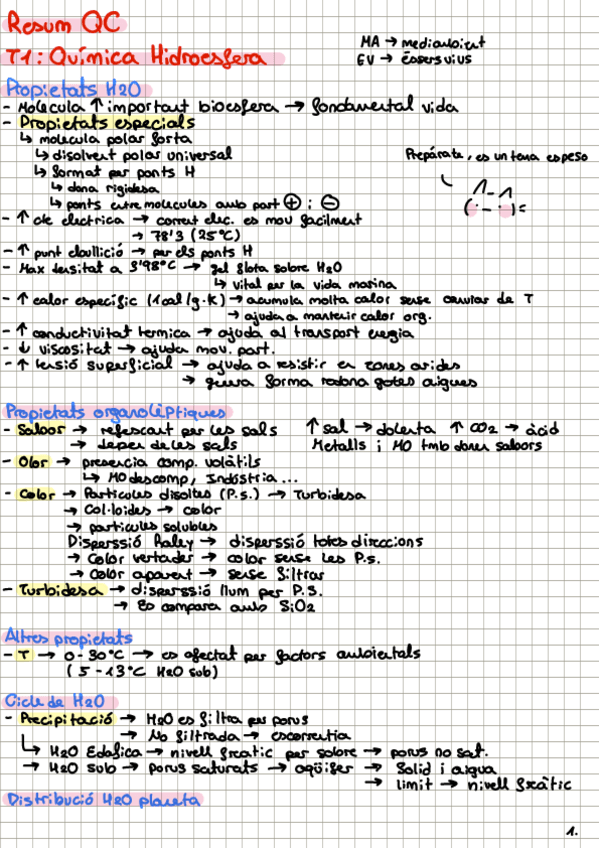 Resum QC
MA → mediambient
EV → éssers vius
T1: Química Hidroesfera
Propietats H2O
- Molecula ↑ important biosfera → fonamental vida
- Propietats especials
↳ molecula polar forta
↳ disolvent polar universal
Prepárate, es un tema espeso
↳ format per ponts H
↳ dona rigidesa
↳ ponts entre molecules amb part ⊕ i ⊖
- ↑ cte electrica → corrent elec. es mou facilment
→ 78'3 (25°C)
- ↑ punt ebullició → per els ponts H
- Max densitat a 3'98°C → gel flota sobre H2O
↳ vital per la vida marina
- ↑ calor especific (1cal/g·K) → acumula molta calor sense canviar de T
→ ajuda a mantenir calor org.
- ↑ conductivitat termica → ajuda al transport energia
- ↓ viscositat → ajuda mov. part.
- ↑ tensió superficial → ajuda a resistir en zones arides
→ genera forma redona gotes aigues
Propietats organolèptiques
- Sabor → refrescant per les sals ↑ sal → dolenta ↑ CO2 → àcid
→ depen de les sals Metalls i MO tmb donen sabors
- Olor → presencia comp. volàtils
↳ MO descomp, Indústria ...
- Color → Particules disoltes (P.s.) → Turbidesa
→ Col·loides → color
→ particules solubles
Disperssió Raley → disperssió totes direccions
→ Color vertader → color sense les P.s.
→ Color aparent → sense filtrar
- Turbidesa → disperssió llum per P.S.
→ Es compara amb SiO2
Altres propietats
- T → 0-30°C → es afectat per factors ambientals
(5-13°C H2O sub)
Cicle de H2O
- Precipitació → H2O es filtra per porus
→ No filtrada → escorrentia
↳ H2O Edafica → nivell freatic per sobre → porus no sat.
→ H2O sub → porus saturats → aqüifer → Solid i aigua
→ limit → nivell freàtic
Distribució H2O planeta
1.